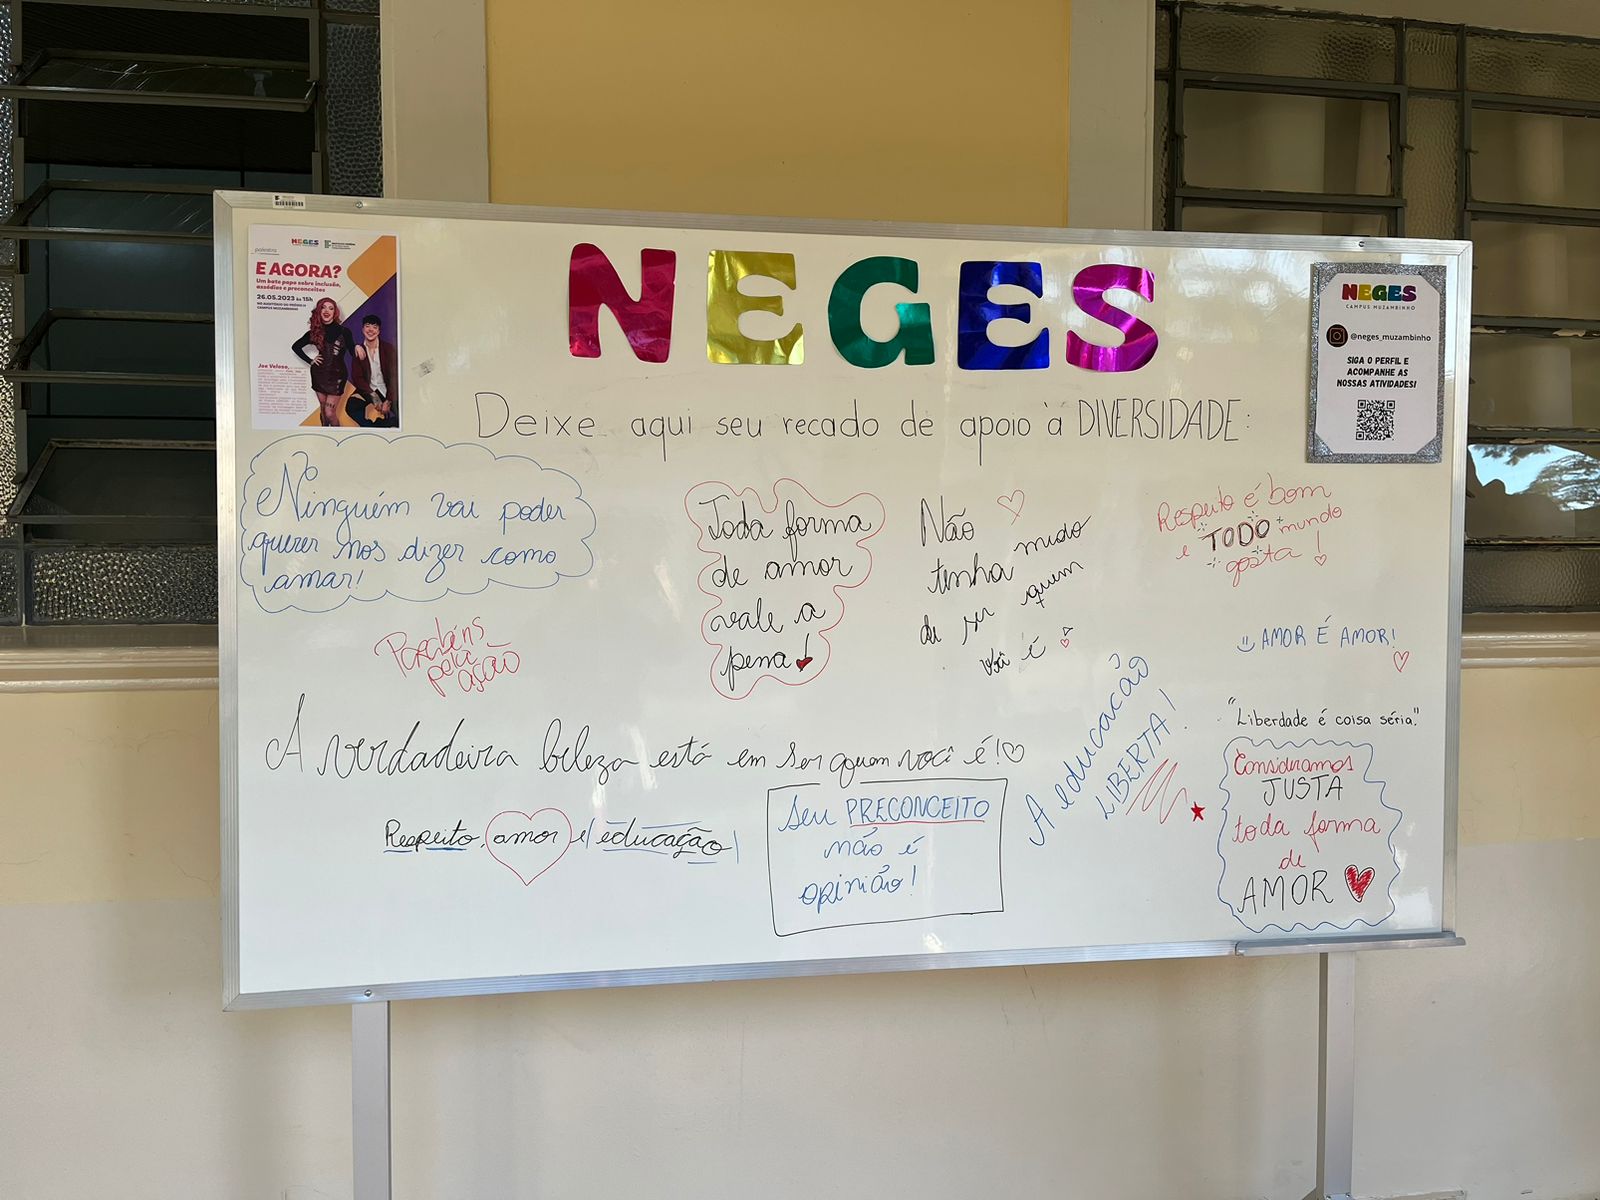 NEGES
palestra
NEGES
E AGORA?
Um bate papo sobre inclusão,
assédios e preconceitos
26.05.2023 às 15h
NO AUDITÓRIO DO PRÉDIO H
CAMPUS MUZAMBINHO
Joe Veloso,
NEGES
CAMPUS MUZAMBINHO
@neges_muzambinho
SIGA O PERFIL E
ACOMPANHE AS
NOSSAS ATIVIDADES!
Deixe aqui seu recado de apoio à DIVERSIDADE:
Ninguém vai poder
querer nos dizer como
amar!
Toda forma
de amor
vale a
pena!
Não
tenha medo
de ser quem
você é
Respeito é bom
e TODO mundo
gosta!
Parabéns
pela
ação
AMOR É AMOR!
A verdadeira beleza está em ser quem você é!
A educação
LIBERTA!
"Liberdade é coisa séria."
Respeito, amor e educação
Seu PRECONCEITO
não é
opinião!
Consideramos
JUSTA
toda forma
de
AMOR